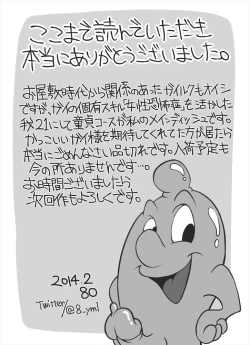 ここまで読んでいただき
本当にありがとうございました。
お屋敷時代から関係のあったガイルクもオイシ
ですが、ガイの固有スキル「女性恐怖症」を活かした
秋21にして童貞コースが私のメインディッシュです。
かっこいいガイ様を期待してくれてた方が居たら
本当にごめんなさい品切れです。入荷予定も
今の所ありません…。
お時間ございましたら
次回作もよろしくです。
2014.2
80
Twitter/@8_yml